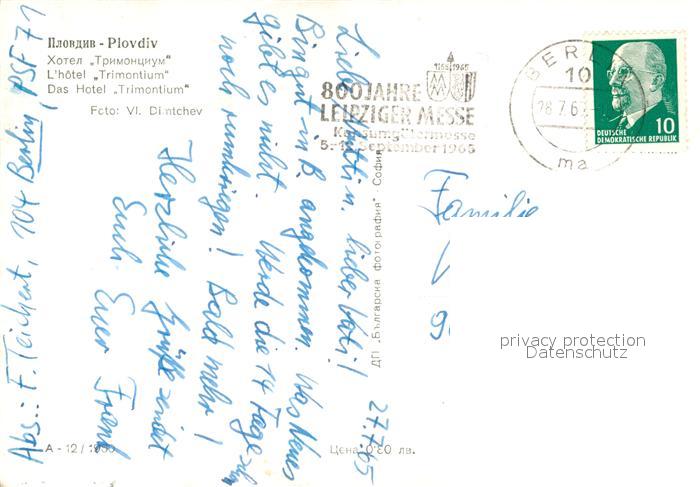 Пловдив - Plovdiv
Хотел „Тримонциум“
L'hôtel „Trimontium“
Das Hotel „Trimontium“
Foto: Vl. Dimtchev
Abs.: F. Teichert, 104 Berlin, PSF 71
27.7.65
Liebe Mutti u. lieber Vati!
Bin gut in B. angekommen. Was Neues
gibt es nicht. Werde die 14 Tage
noch rumkriegen! Bald mehr!
Herzliche Grüße sendet
Euch Euer Frank
A - 12 / 1960
Цена 0·80 лв.
ДП „Българска фотография“ София
1165 1965
800 JAHRE
LEIPZIGER MESSE
Konsumgütermesse
5.-12. September 1965
BERLIN
10
28.7.65
ma
DEUTSCHE
DEMOKRATISCHE REPUBLIK
10
Familie
privacy protection
Datenschutz